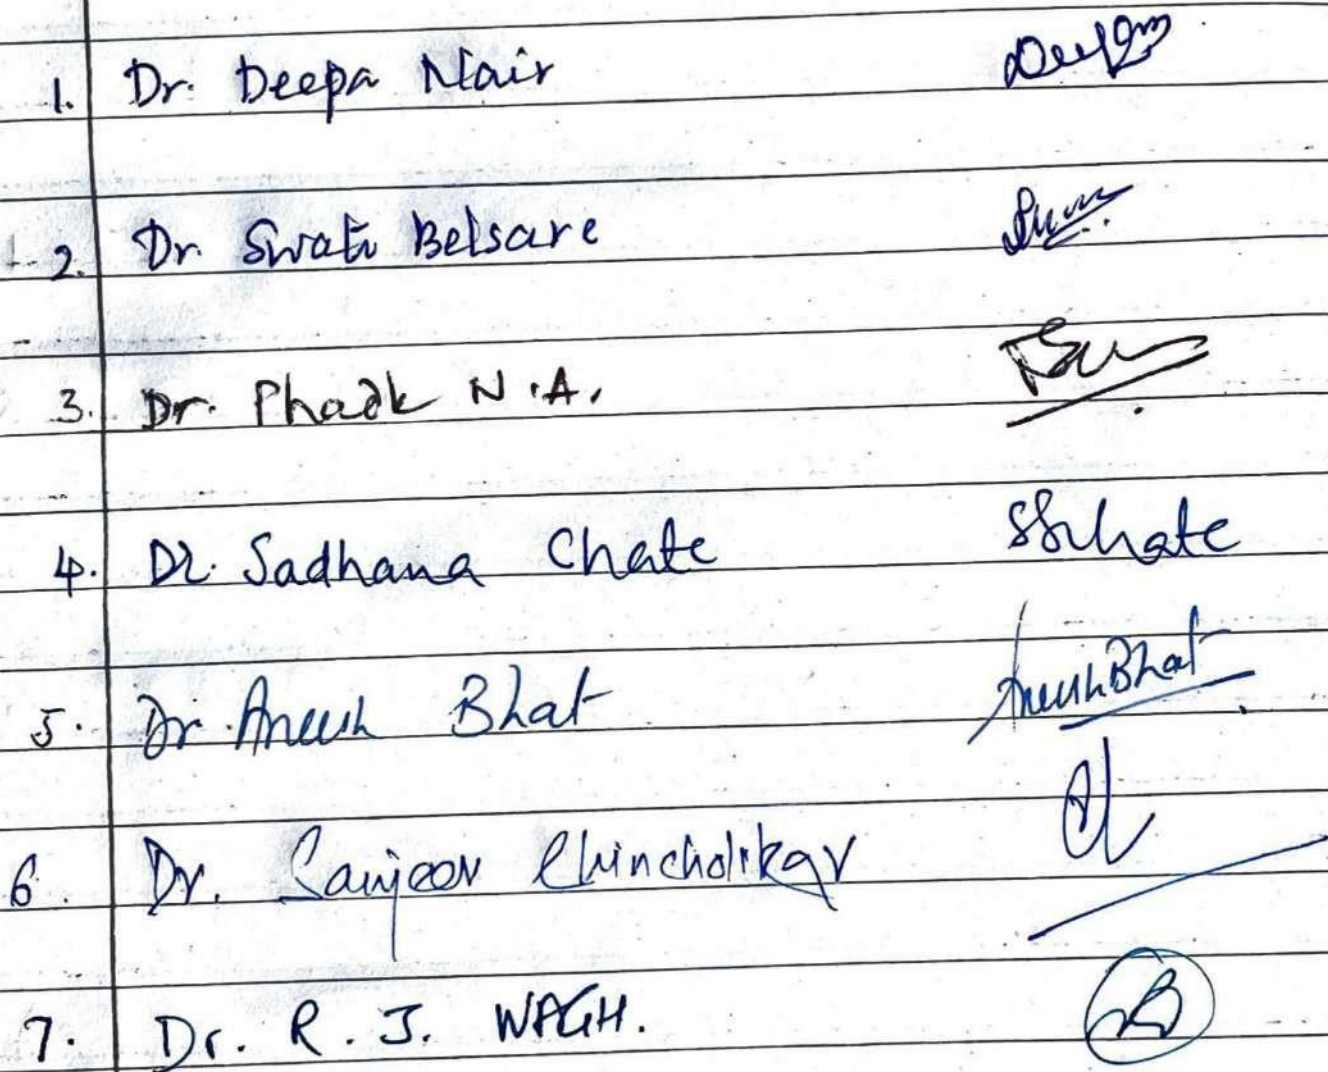 1. Dr. Deepa Nair
2. Dr. Swati Belsare
3. Dr. Phadk N.A.
4. Dr. Sadhana Chate SSChate
5. Dr. Aneesh Bhat Aneesh Bhat
6. Dr. Sanjeev Chincholikar
7. Dr. R. J. WAGH.